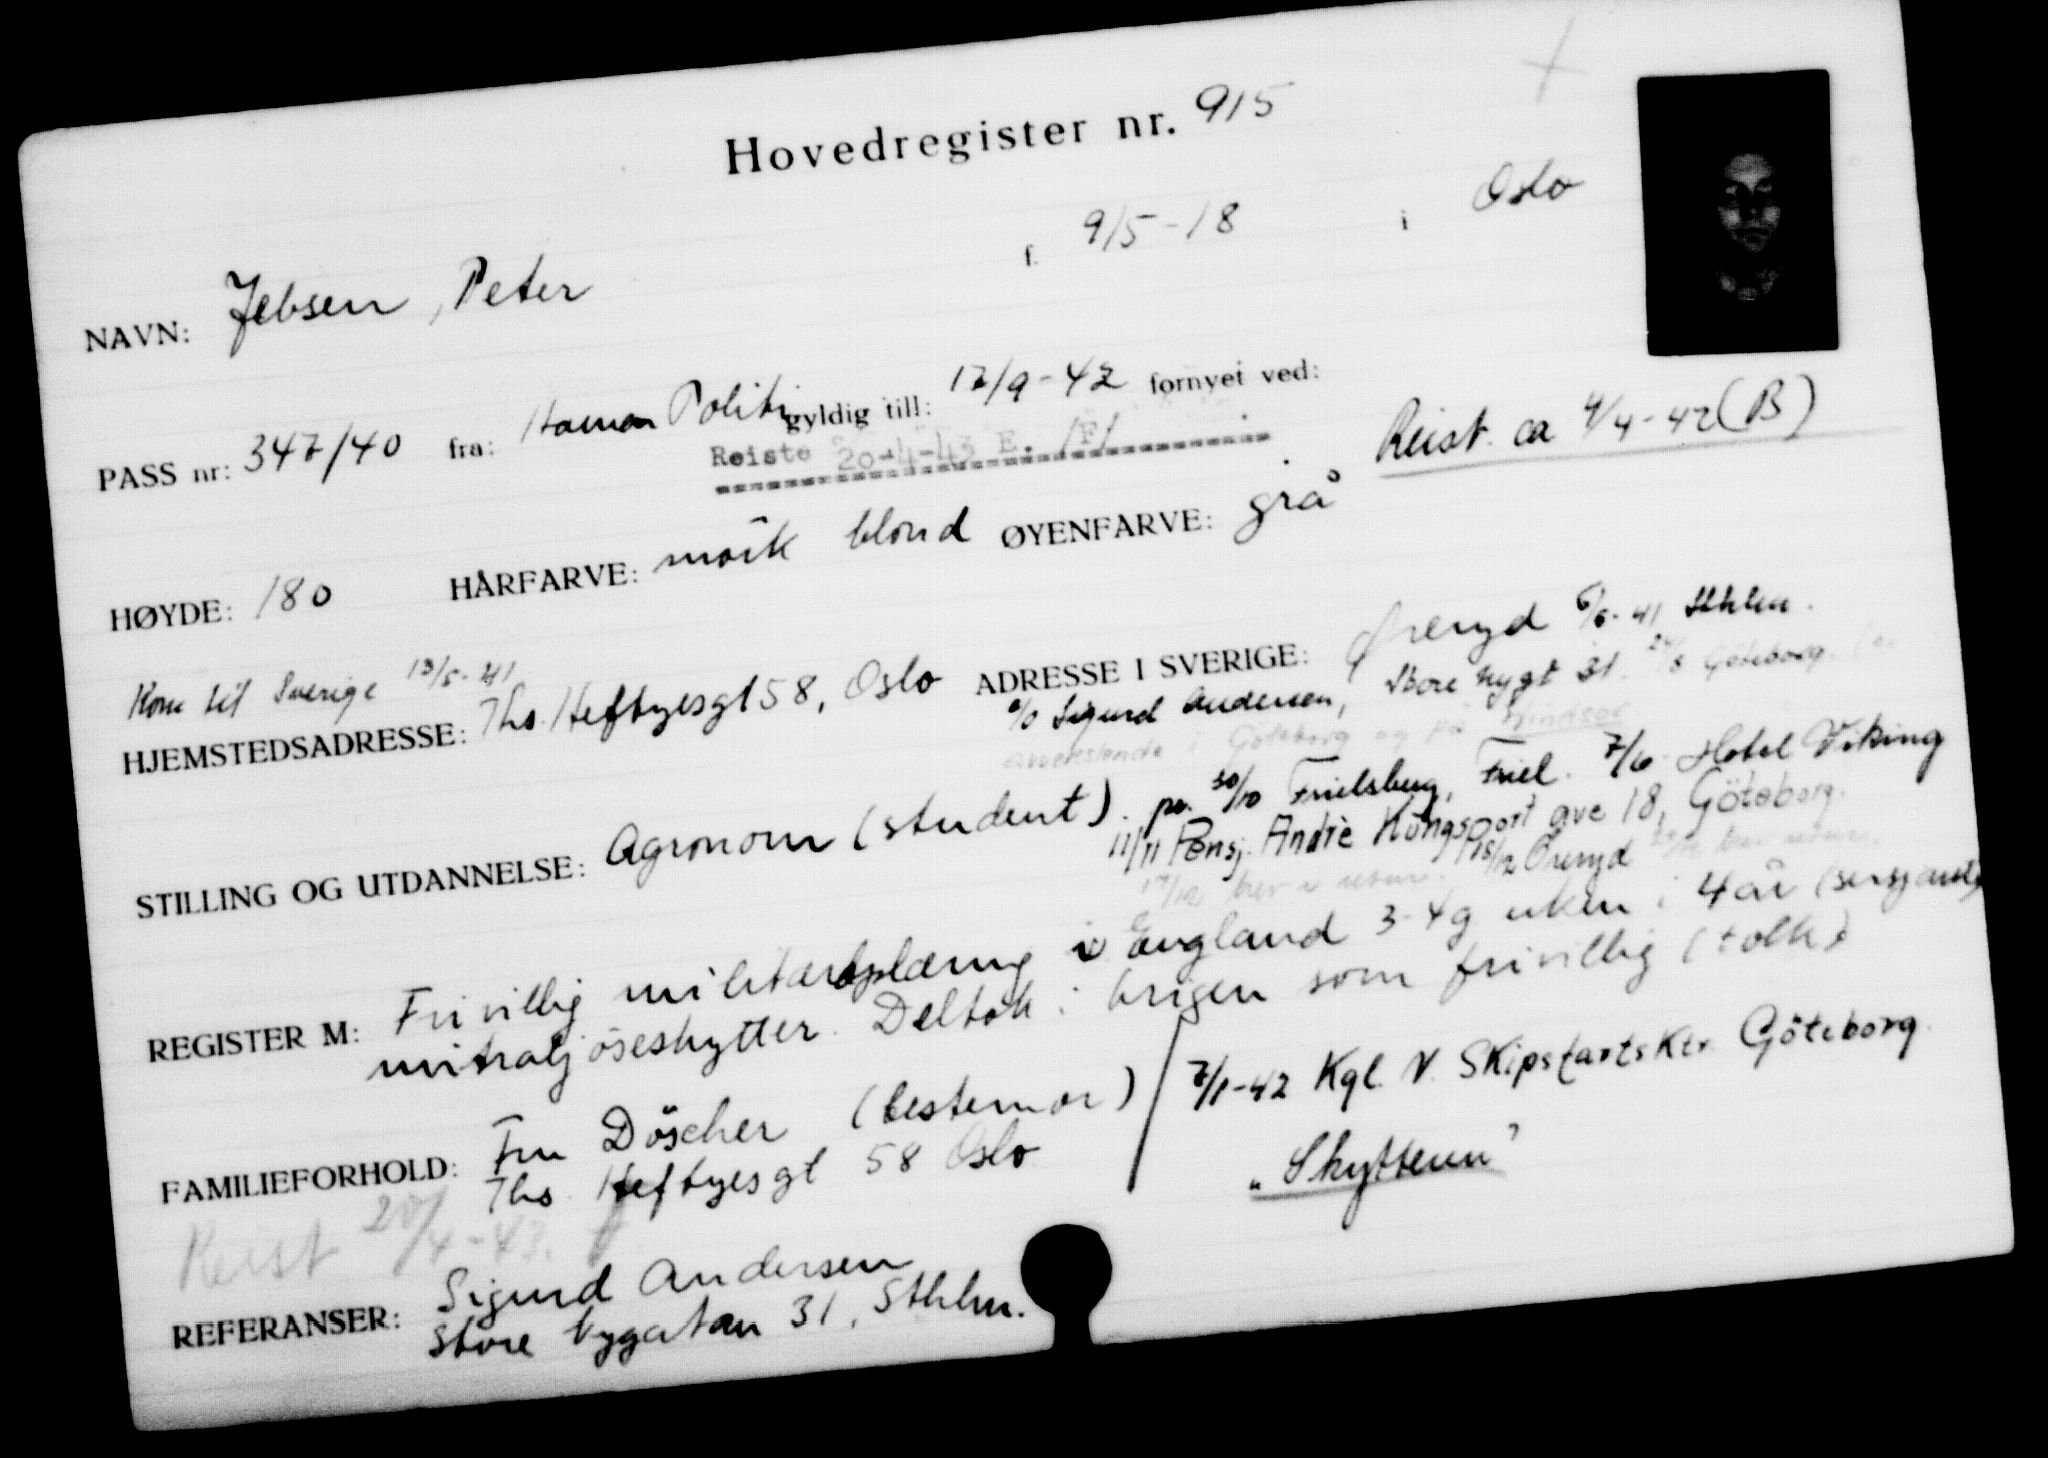 Hovedregister nr. 915
NAVN: Jebsen, Peter f. 9/5-18 i Oslo
PASS nr: 347/40 fra: Hamar Politi gyldig till: 17/9-42 fornyet ved:
Reiste 20-4-43 E. (F)
Reist ca 4/4-42 (B)
HØYDE: 180 HÅRFARVE: mörk blond ØYENFARVE: grå
Kom til Sverige 13/5-41
HJEMSTEDSADRESSE: Ths. Heftyesgt 58, Oslo ADRESSE I SVERIGE: Øreryd 6/6-41 Sthlm.
c/o Sigurd Andersen, Store Nygt 31. Göteborg
i Göteborg og på Windsor
STILLING OG UTDANNELSE: Agronom (student). pr. 30/10 Frielsberg, Friel. Hotel Viking
11/11 Pensj. Andrè Kungsport ave 18, Göteborg.
brev i retur. 15/12 Öreryd
REGISTER M: Frivillig militæropplæring i England 3-4 g uken i 4 år (sersjant)
mitraljöseskytter. Deltok i krigen som frivillig (tolk)
FAMILIEFORHOLD: Fru Döscher (bestemor) 7/1-42 Kgl. N. Skipsfartsktr. Göteborg
Ths. Heftyesgt 58 Oslo
"Skytteren"
Reist 20/4-43.
REFERANSER: Sigurd Andersen
Store Nygatan 31, Sthlm.